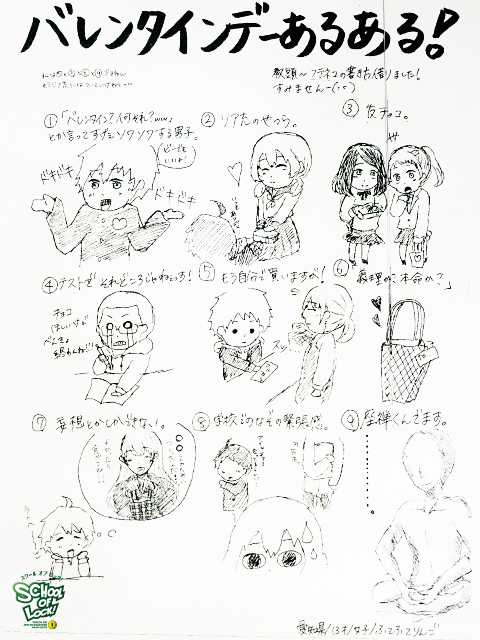 バレンタインデーあるある!
教頭〜フデネコの書き方借りました!
すみませんー(--)
①「バレンタイン?何それ?www」
とか言ってすげぇソワソワする男子。
どーでも
いいわ!
ドキドキ
ドキドキ
② リア充のやつら。
③ 友チョコ。
④テストで それどころじゃねぇっす!
チョコ
ほしいけど
べんきょ
終わんね!!!
⑤ もう自分で買いますが!
スッ
⑥ 義理か?本命か?」
⑦ 妄想とかしかできない。
⑧ 学校でのなぞの緊張感。
⑨ 座禅くんでます。
スクール オブ ロック!
SCHOOL
OF
LOCK!
愛知県/13才/女子/ふてふてりんご